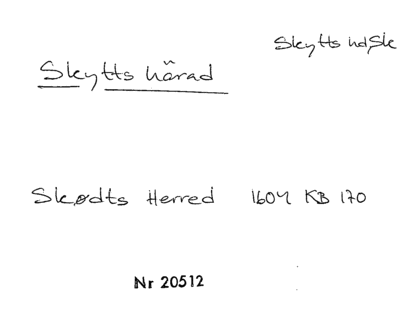 Skytts hd Sk
Skytts härad
Skødts Herred 1604 KB 170
Nr 20512